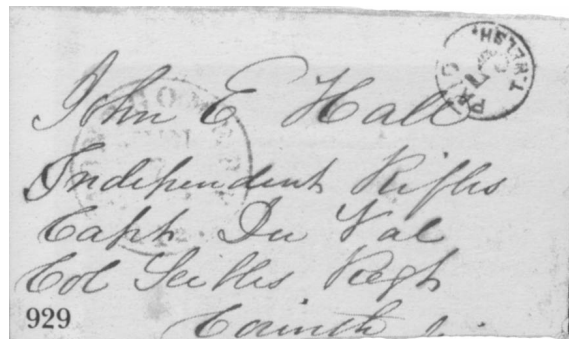 PAID
T. WELSH.
John E Hall
Independent Rifles
Capt Du Val
Col Regt
Corinth
929